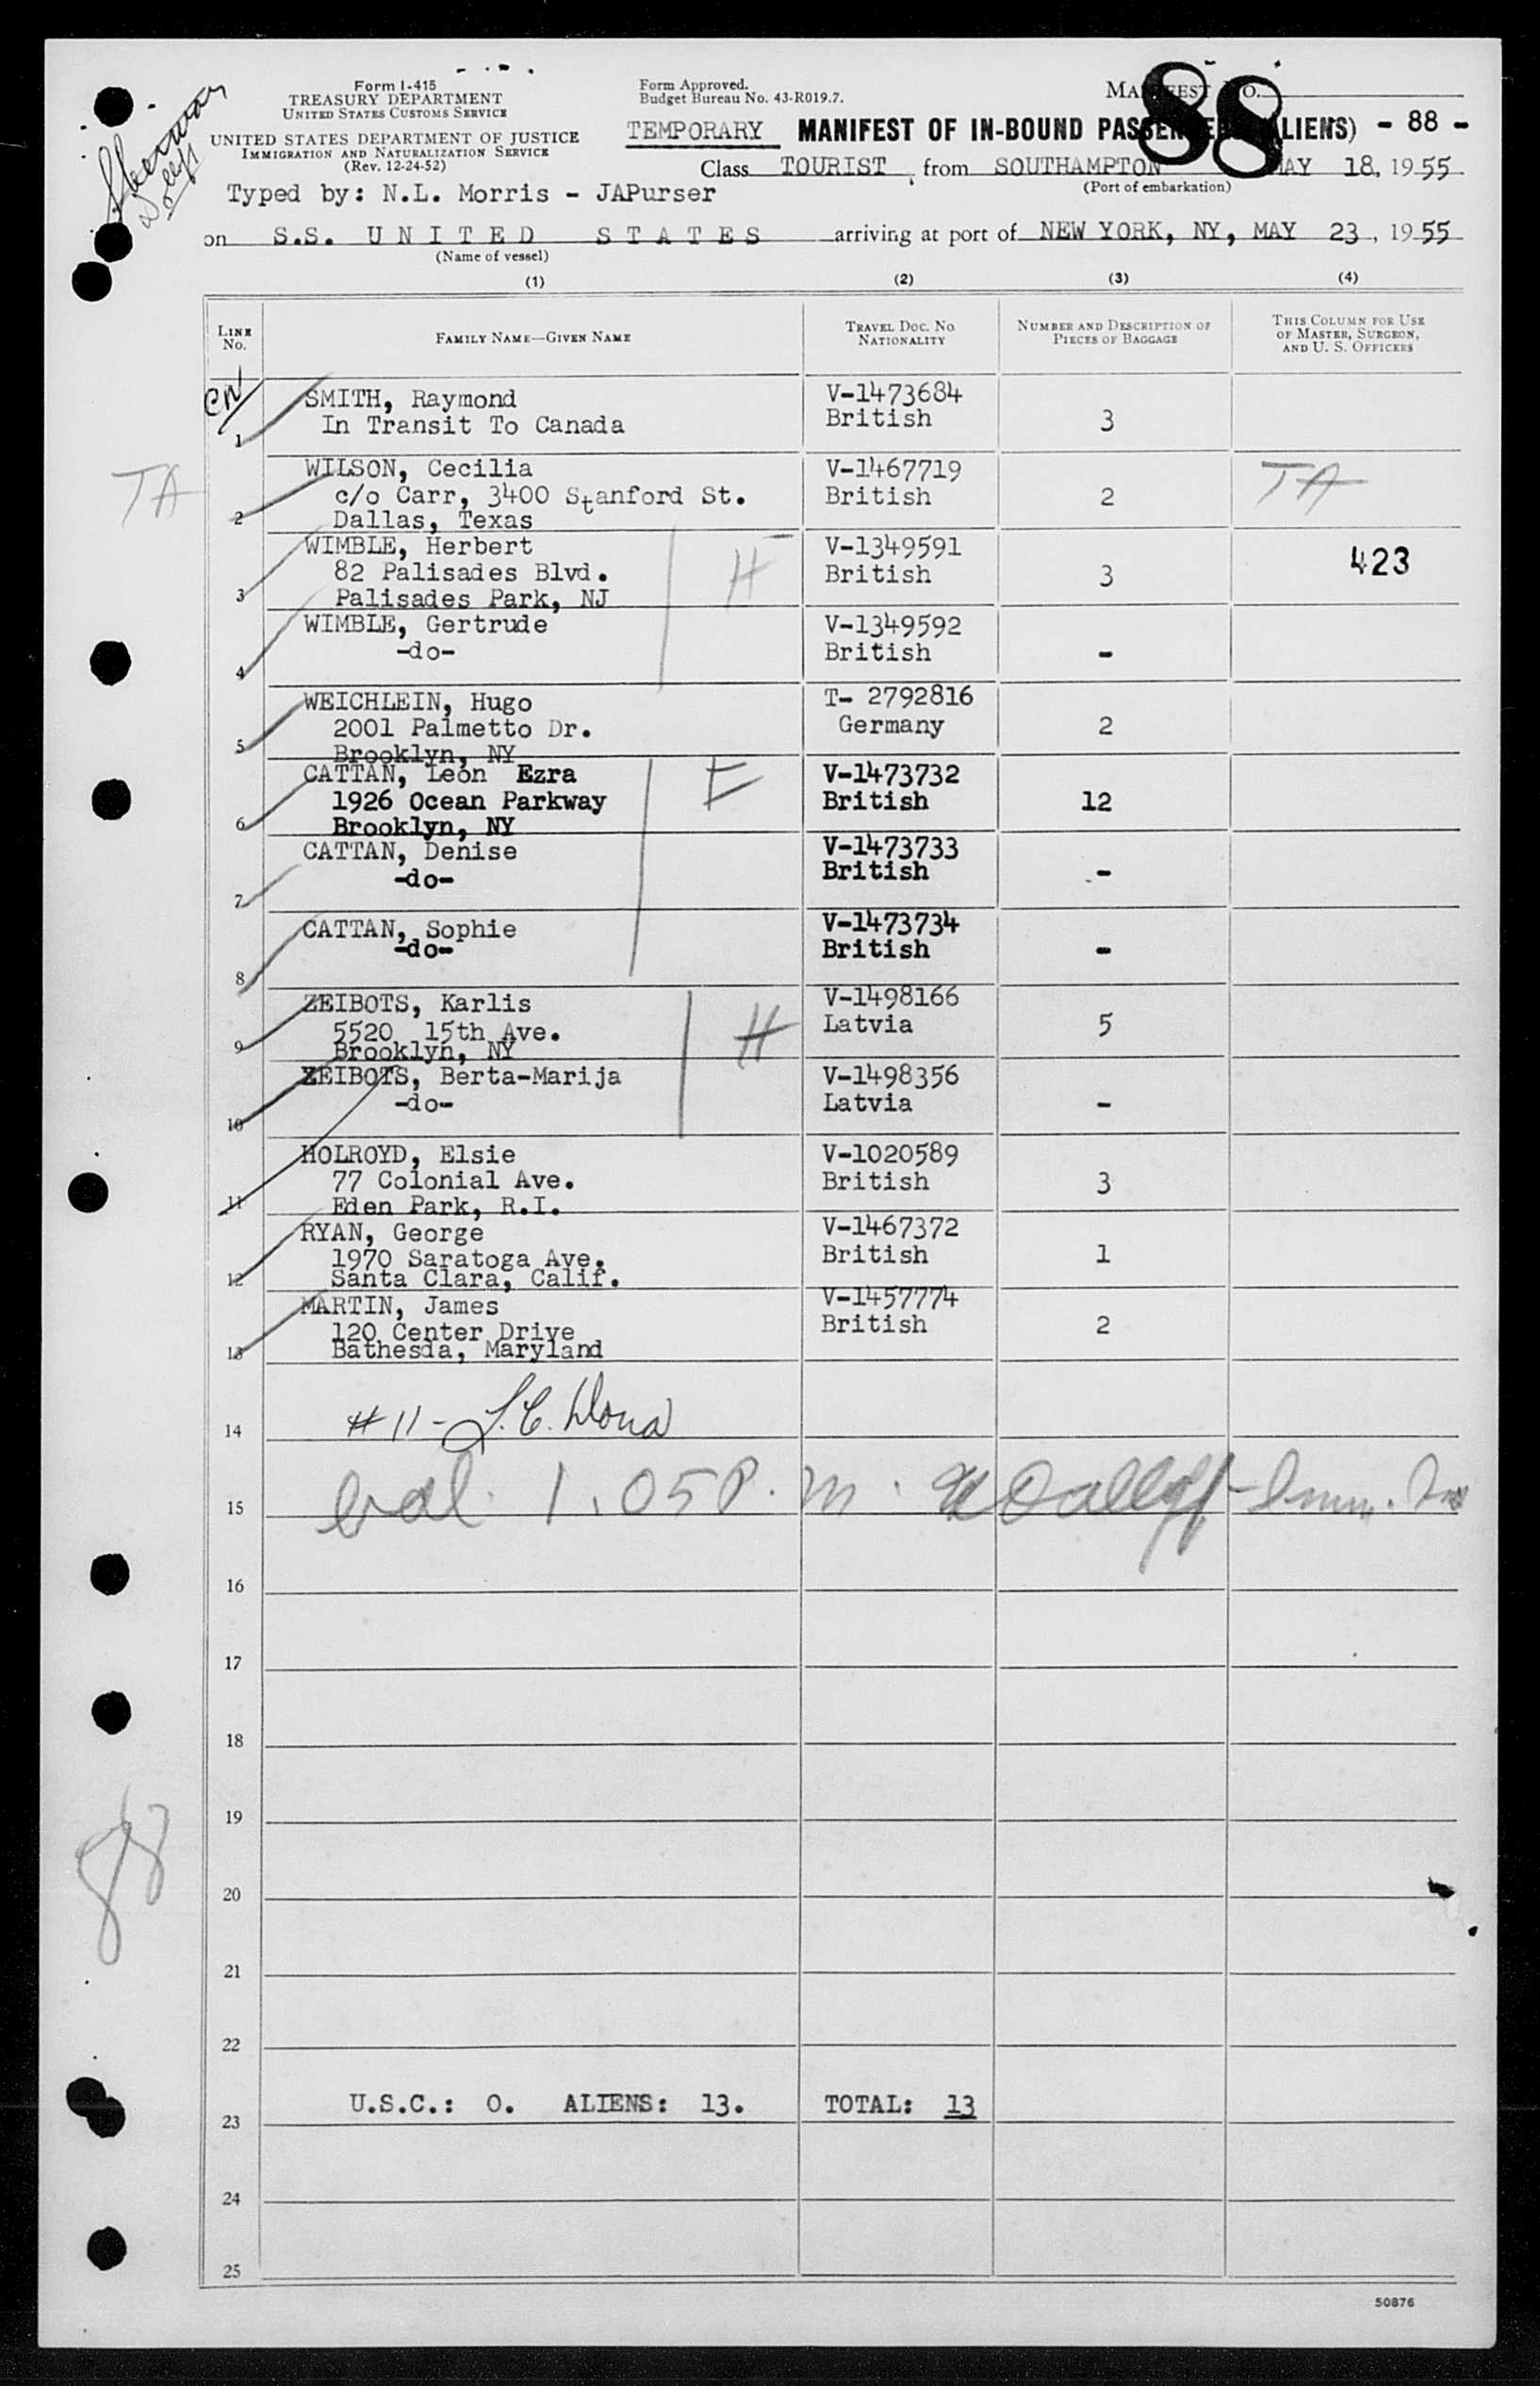 Form I-415
TREASURY DEPARTMENT
UNITED STATES CUSTOMS SERVICE
UNITED STATES DEPARTMENT OF JUSTICE
IMMIGRATION AND NATURALIZATION SERVICE
(Rev. 12-24-52)
Form Approved.
Budget Bureau No. 43-R019.7.
88
TEMPORARY MANIFEST OF IN-BOUND - 88 -
Class TOURIST from SOUTHAMPTON MAY 18, 1955
(Port of embarkation)
Typed by: N.L. Morris - JAPurser
on S.S. UNITED STATES arriving at port of NEW YORK, NY, MAY 23, 1955
(Name of vessel)
(1) (2) (3) (4)
LINE No. FAMILY NAME—GIVEN NAME TRAVEL DOC. NO. NATIONALITY NUMBER AND DESCRIPTION OF PIECES OF BAGGAGE THIS COLUMN FOR USE OF MASTER, SURGEON, AND U. S. OFFICERS
SMITH, Raymond V-1473684
1 In Transit To Canada British 3
WILSON, Cecilia V-1467719
TA c/o Carr, 3400 Stanford St. British 2 TA
2 Dallas, Texas
WIMBLE, Herbert V-1349591
82 Palisades Blvd. H British 3 423
3 Palisades Park, NJ
WIMBLE, Gertrude V-1349592
4 -do- British -
WEICHLEIN, Hugo T- 2792816
2001 Palmetto Dr. Germany 2
5 Brooklyn, NY
CATTAN, Leon Ezra V-1473732
1926 Ocean Parkway British 12
6 Brooklyn, NY
CATTAN, Denise V-1473733
7 -do- British -
CATTAN, Sophie V-1473734
8 -do- British -
ZEIBOTS, Karlis V-1498166
5520 15th Ave. H Latvia 5
9 Brooklyn, NY
ZEIBOTS, Berta-Marija V-1498356
10 -do- Latvia -
HOLROYD, Elsie V-1020589
77 Colonial Ave. British 3
11 Eden Park, R.I.
RYAN, George V-1467372
1970 Saratoga Ave. British 1
12 Santa Clara, Calif.
MARTIN, James V-1457774
120 Center Drive British 2
13 Bathesda, Maryland
14 #11-
15 1.05 P.m.
16
17
18
19
88
20
21
22
U.S.C.: 0. ALIENS: 13. TOTAL: 13
23
24
25
50876